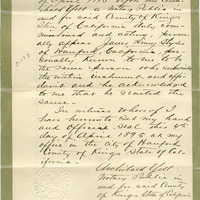 of April 1895 before me
a Notary Public in
and for said County of Kings
State of California duly com-
missioned and acting, person-
ally appear James Henry
of Hanford, California per-
sonally known to me to be
the same person who subscribed
the within instrument and affi-
davit and he acknowledged
to me that he executed the
same
In witness whereof I
have hereunto set my hand
and Official Seal this 9th
day of April 1895 at my
office in the City of Hanford
County of Kings State of Cal-
ifornia.
Notary Public
in and for said County
of Kings, State of California